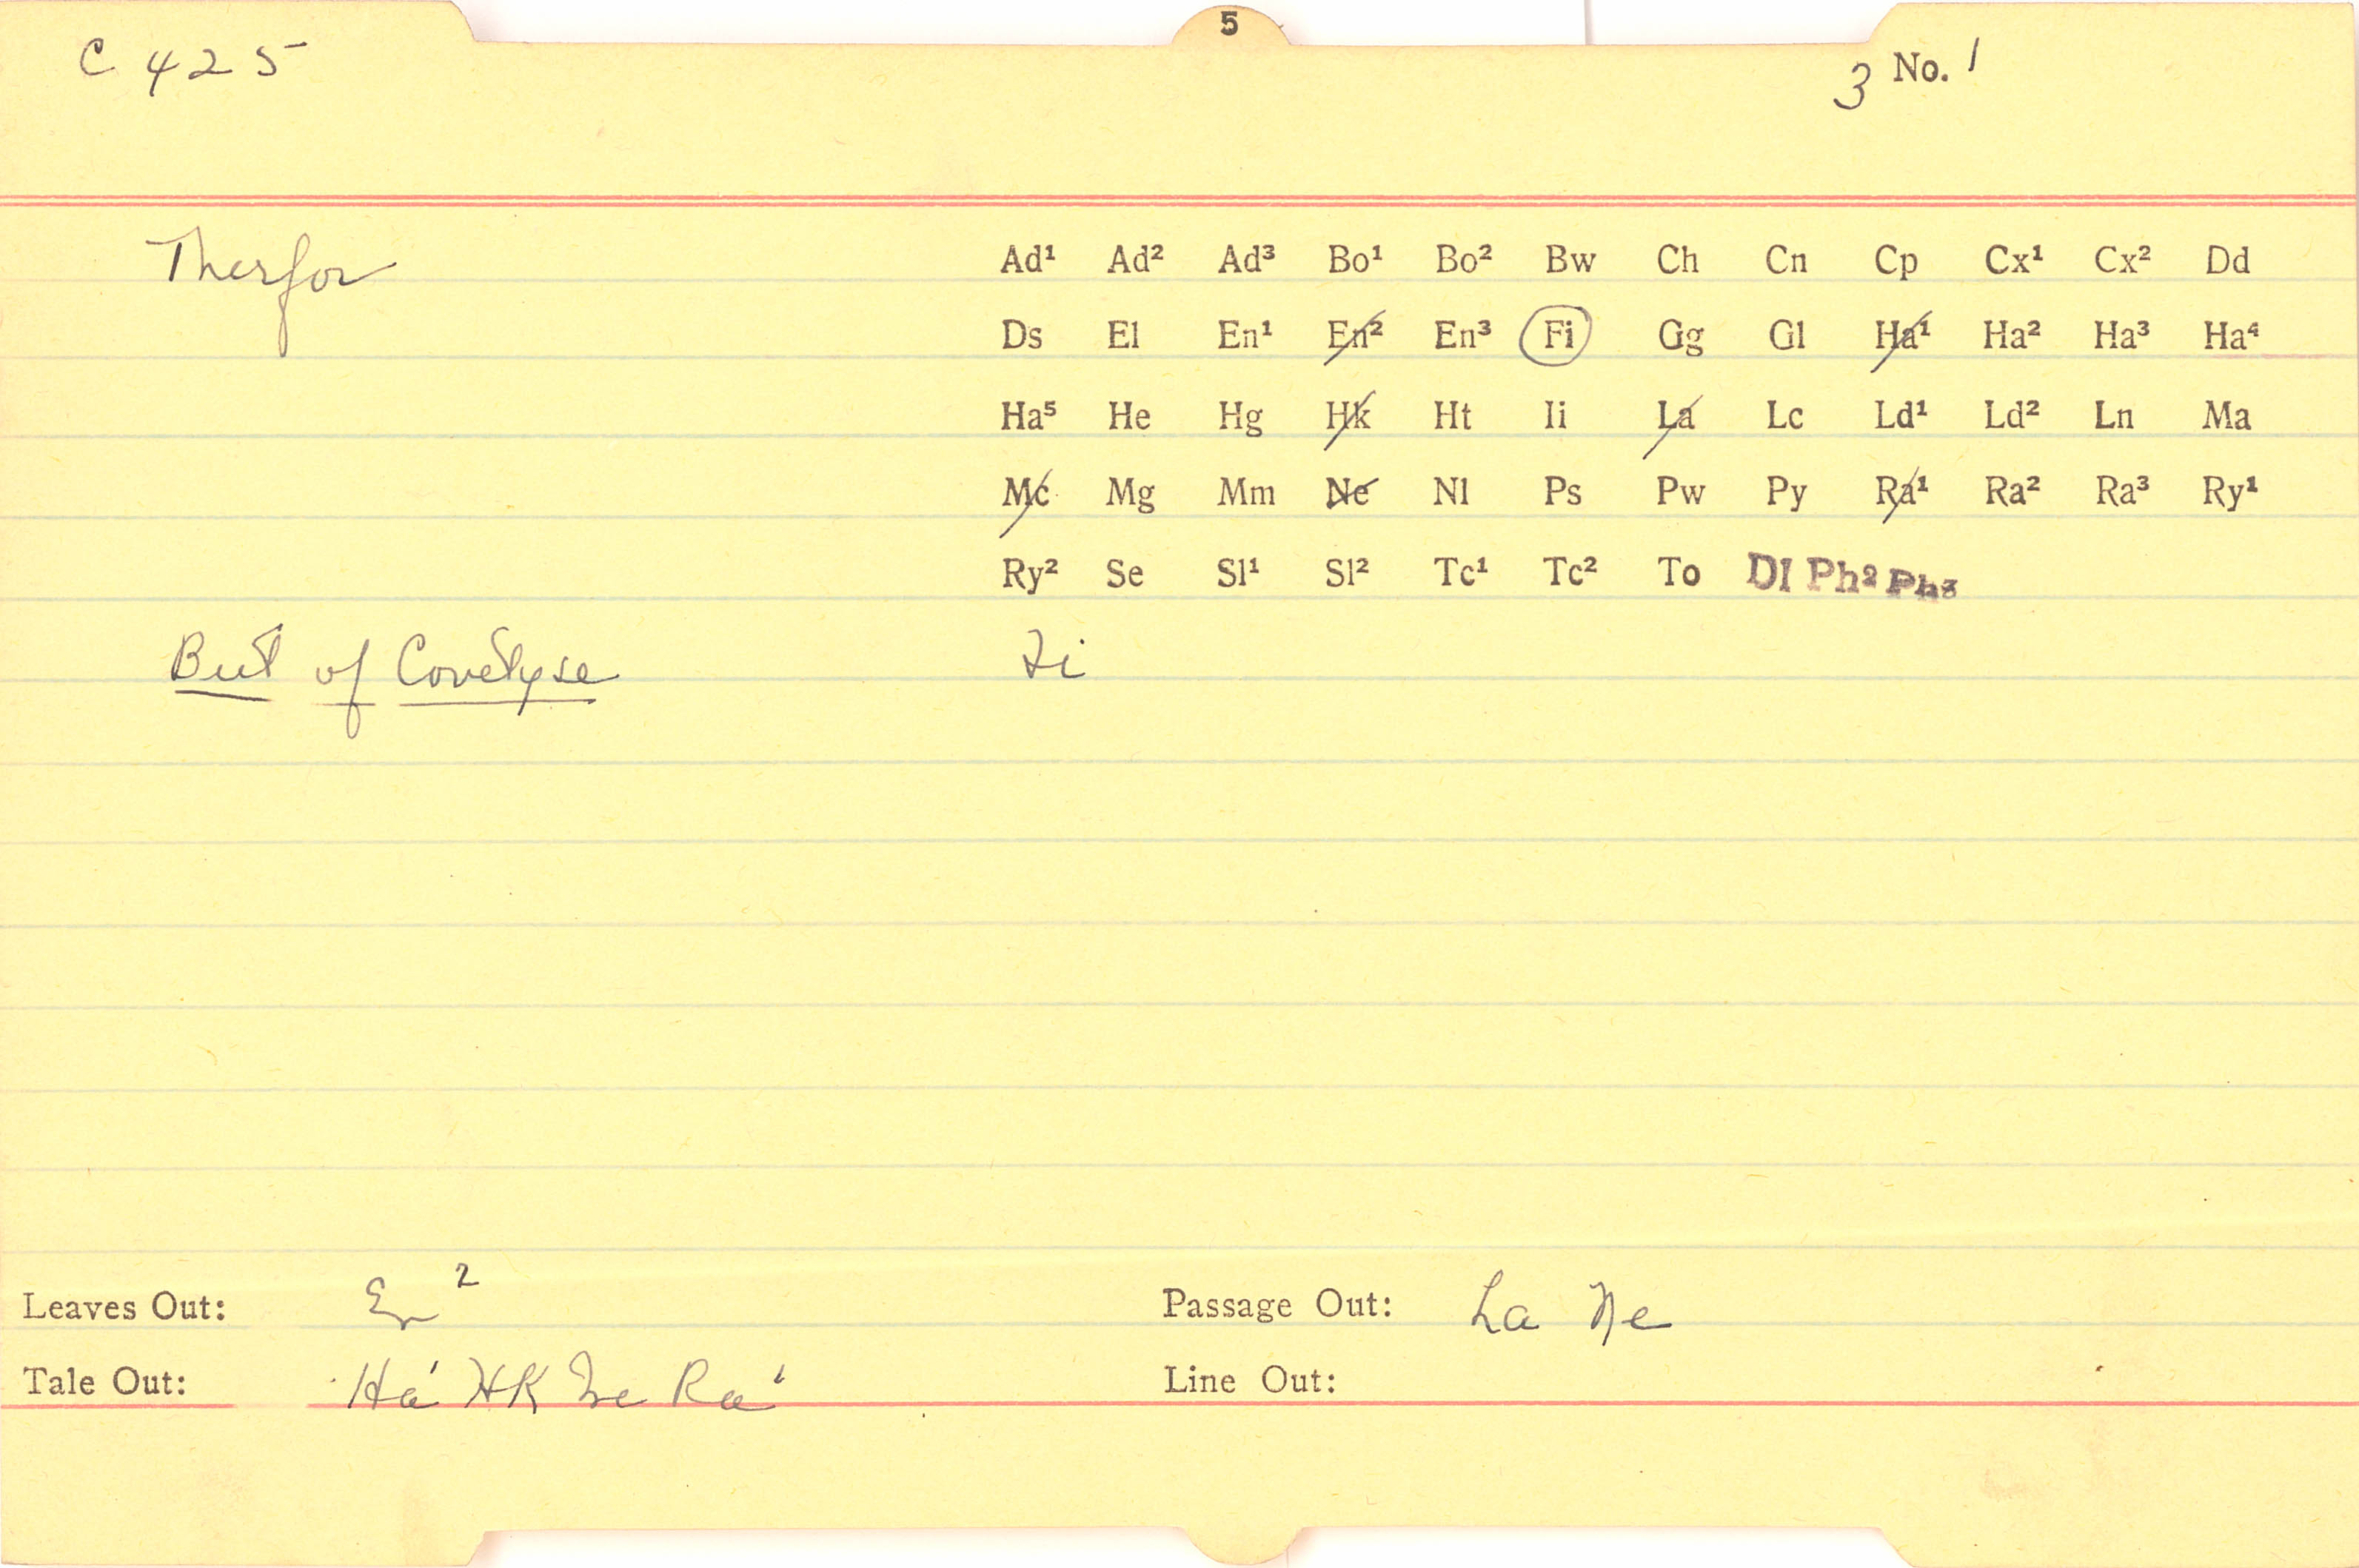 5
C 425
3 No. 1
Therfor
Ad¹ Ad² Ad³ Bo¹ Bo² Bw Ch Cn Cp Cx¹ Cx² Dd
Ds El En¹ En² En³ Fi Gg Gl Ha¹ Ha² Ha³ Ha⁴
Ha⁵ He Hg Hk Ht Ii La Lc Ld¹ Ld² Ln Ma
Mc Mg Mm Ne Nl Ps Pw Py Ra¹ Ra² Ra³ Ry¹
Ry² Se Sl¹ Sl² Tc¹ Tc² To Dl Ph² Ph³
But of Covetyse Fi
Leaves Out: En² Passage Out: La Ne
Tale Out: Ha¹ Hk Mc Ra¹ Line Out: